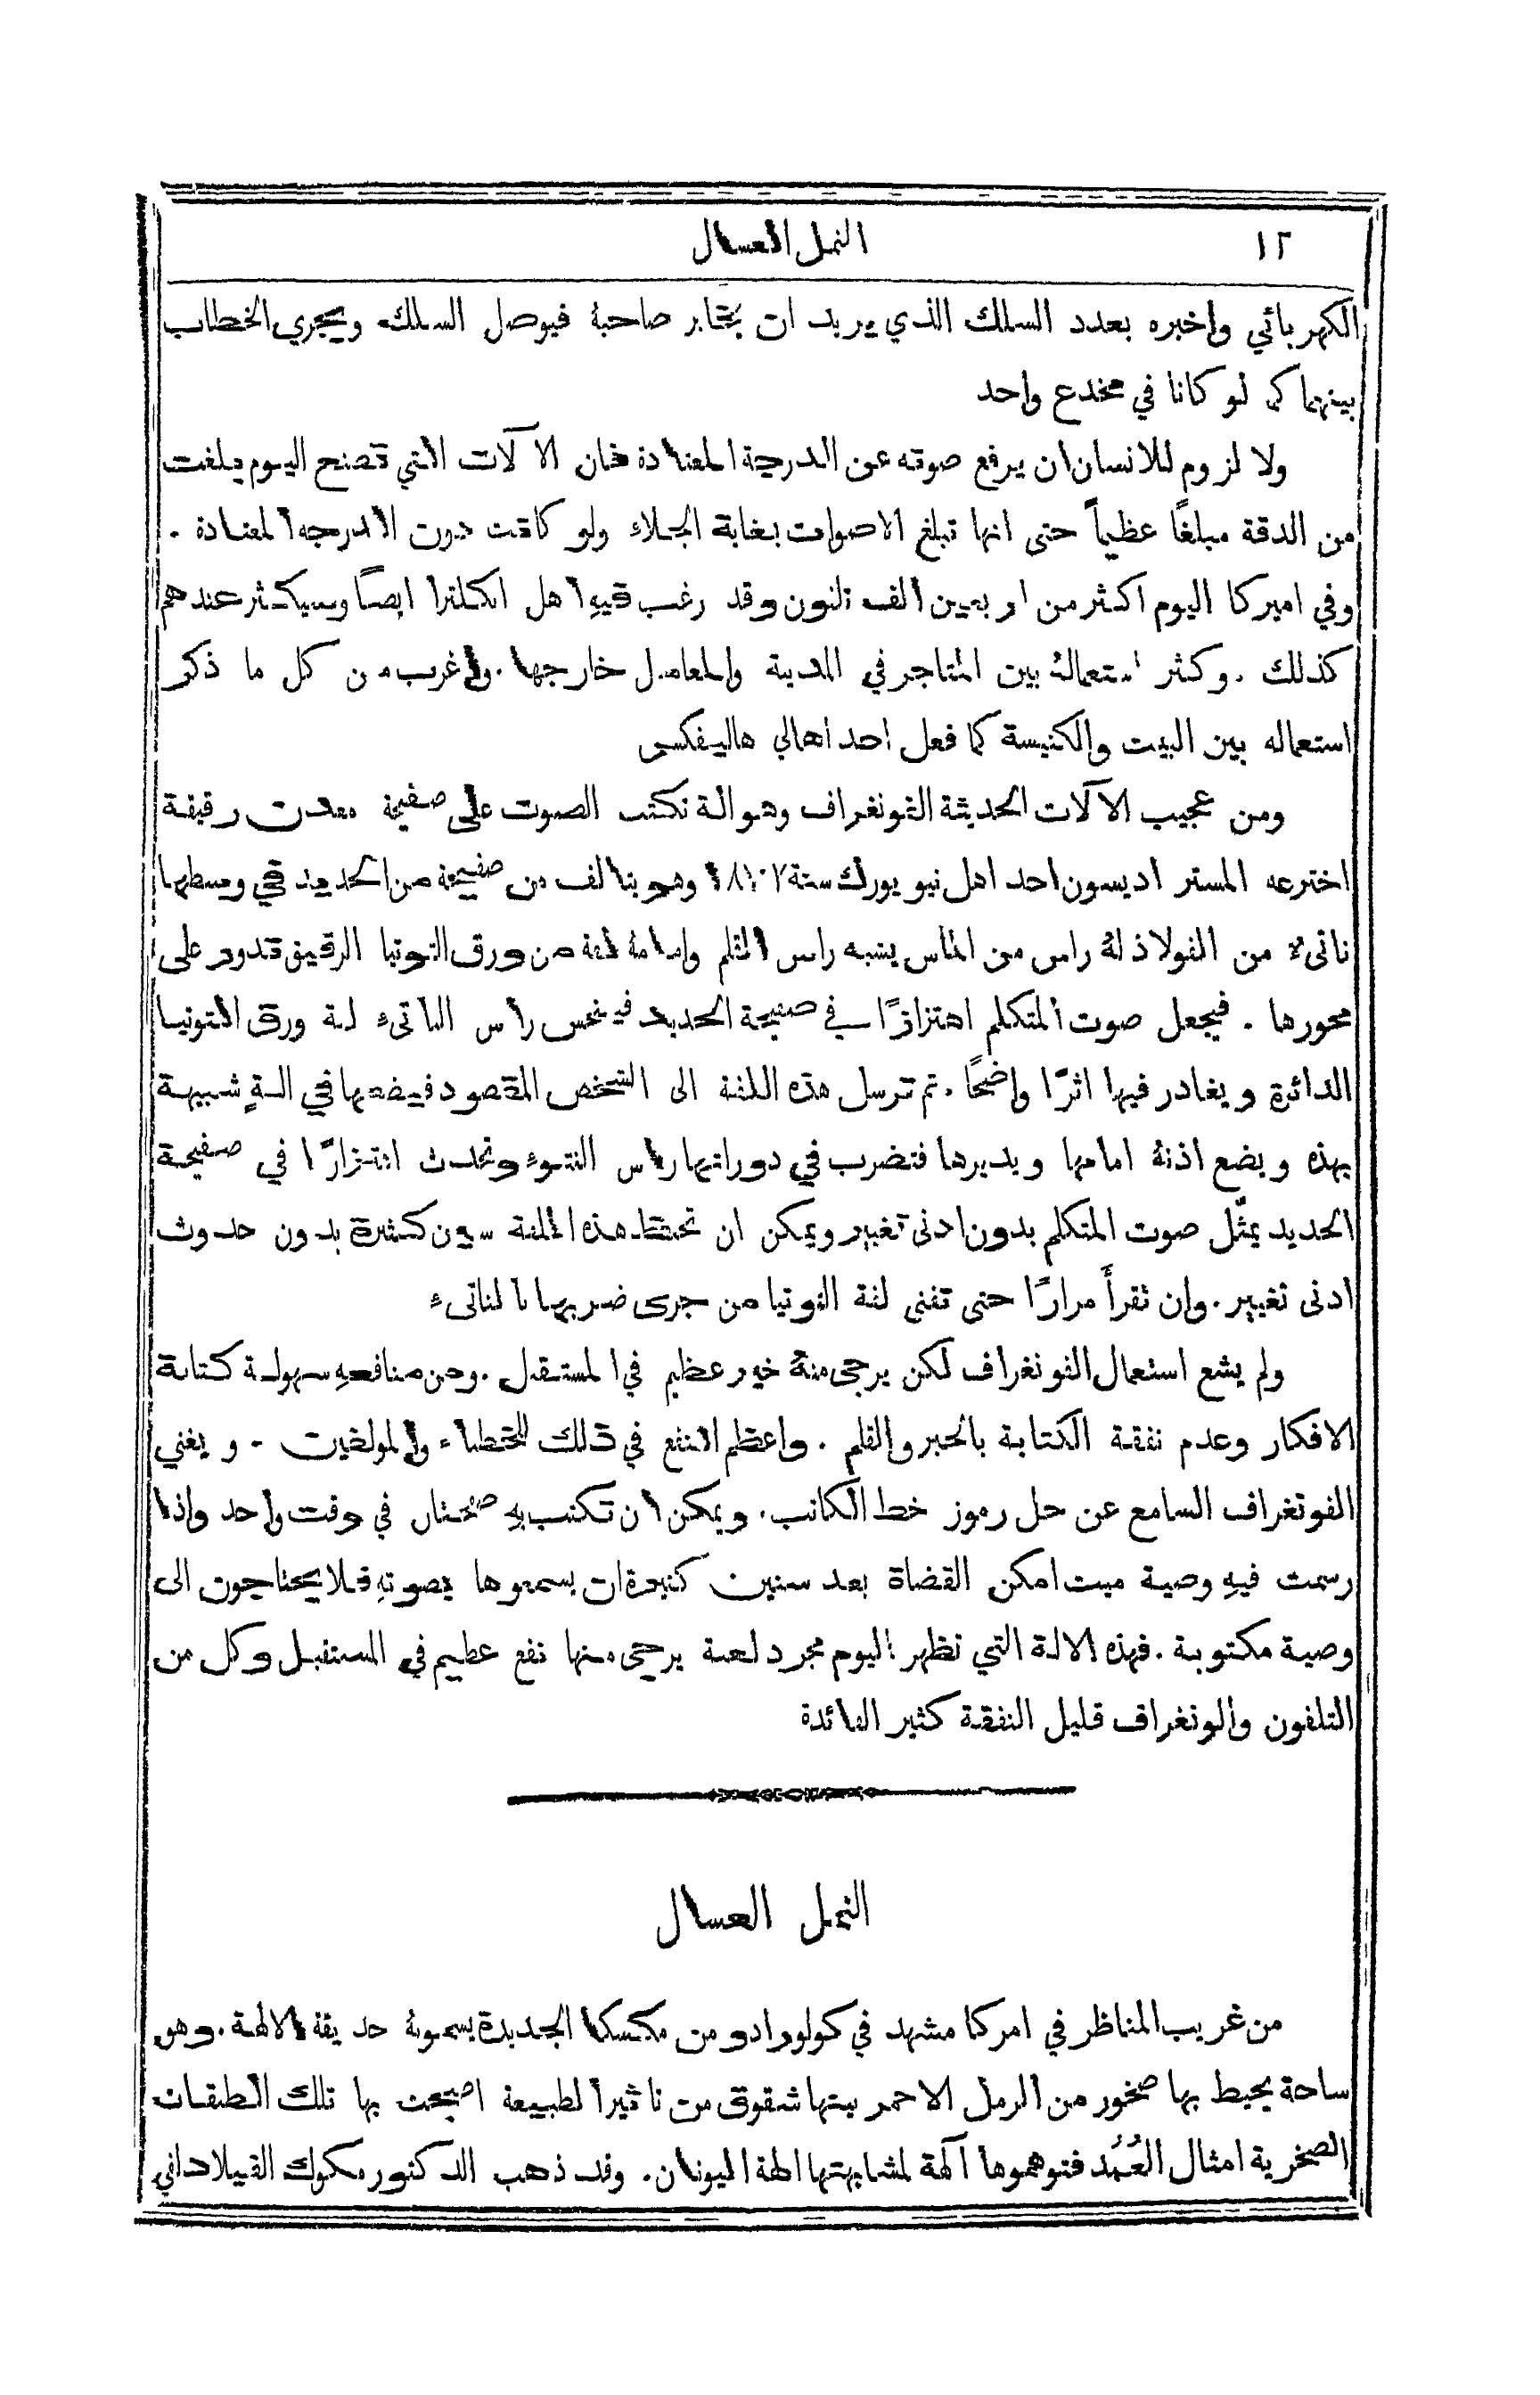 ١٢ النمل العسال
الكهربائي واخبره بعدد السلك الذي يريد ان يخابر صاحبهُ فيوصل السلك ويجري الخطاب
بينهما كما لو كانا في مخدع واحد
ولا لزوم للانسان ان يرفع صوته عن الدرجة المعتادة فان الآلات التي تصنع اليوم بلغت
من الدقة مبلغًا عظيماً حتى انها تبلغ الاصوات بغاية الجلاء ولو كانت دون الدرجة المعتادة .
وفي اميركا اليوم اكثر من اربعين الف تلفون وقد رغب فيهِ اهل انكلترا ايضًا وسيكثر عندهم
كذلك . وكثر استعمالهُ بين المتاجر في المدينة والمعامل خارجها . واغرب من كل ما ذكر
استعماله بين البيت والكنيسة كما فعل احد اهالي هاليفكس
ومن عجيب الآلات الحديثة الفونغراف وهو الة تكتب الصوت على صفيحة معدن رقيقة
اخترعه المستر اديسون احد اهل نيويورك سنة وهو يتالف من صفيحة من الحديد في وسطها
ناتىء من الفولاذ لهُ راس من الماس يشبه راس القلم وامامهُ لفة من ورق التوتيا الرقيق تدور على
محورها . فيجعل صوت المتكلم اهتزازًا في صفيحة الحديد فينخس رأس الناتىء لفة ورق التوتيا
الدائرة ويغادر فيها اثرًا واضحًا . ثم ترسل هذه اللفة الى الشخص المقصود فيضعها في الةٍ شبيهة
بهذه ويضع اذنهُ امامها ويديرها فتضرب في دورانها راس النتوء وتحدث اهتزازًا في صفيحة
الحديد يمثّل صوت المتكلم بدون ادنى تغيير ويمكن ان تحفظ هذه اللفة سنين كثيرة بدون حدوث
ادنى تغيير . وان تقرأ مرارًا حتى تفنى لفة التوتيا من جرى ضربها بالناتىء
ولم يشع استعمال الفونغراف لكن يرجى منهُ خير عظيم في المستقبل . ومن منافعهِ سهولة كتابة
الافكار وعدم نفقة الكتابة بالحبر والقلم . واعظم النفع في ذلك للخطباء والمولفين . ويغني
الفونغراف السامع عن حل رموز خط الكاتب . ويمكن ان تكتب بهِ في وقت واحد واذا
رسمت فيهِ وصية ميت امكن القضاة بعد سنين كثيرة ان يسمعوها بصوتهِ فلا يحتاجون الى
وصية مكتوبة . فهذه الالة التي تظهر اليوم مجرد لعبة يرجى منها نفع عظيم في المستقبل وكل من
التلفون والفونغراف قليل النفقة كثير الفائدة
النمل العسال
من غريب المناظر في امركا مشهد في كولورادو من مكسكا الجديدة يسمونهُ حديقة الالهة . وهو
ساحة يحيط بها صخور من الرمل الاحمر بينها شقوق من تاثير الطبيعة اصبحت بها تلك الطبقات
الصخرية امثال العُمُد فتوهموها آلهة لمشابهتها الهة اليونان . وقد ذهب الدكتور مكوك الفيلادلفي